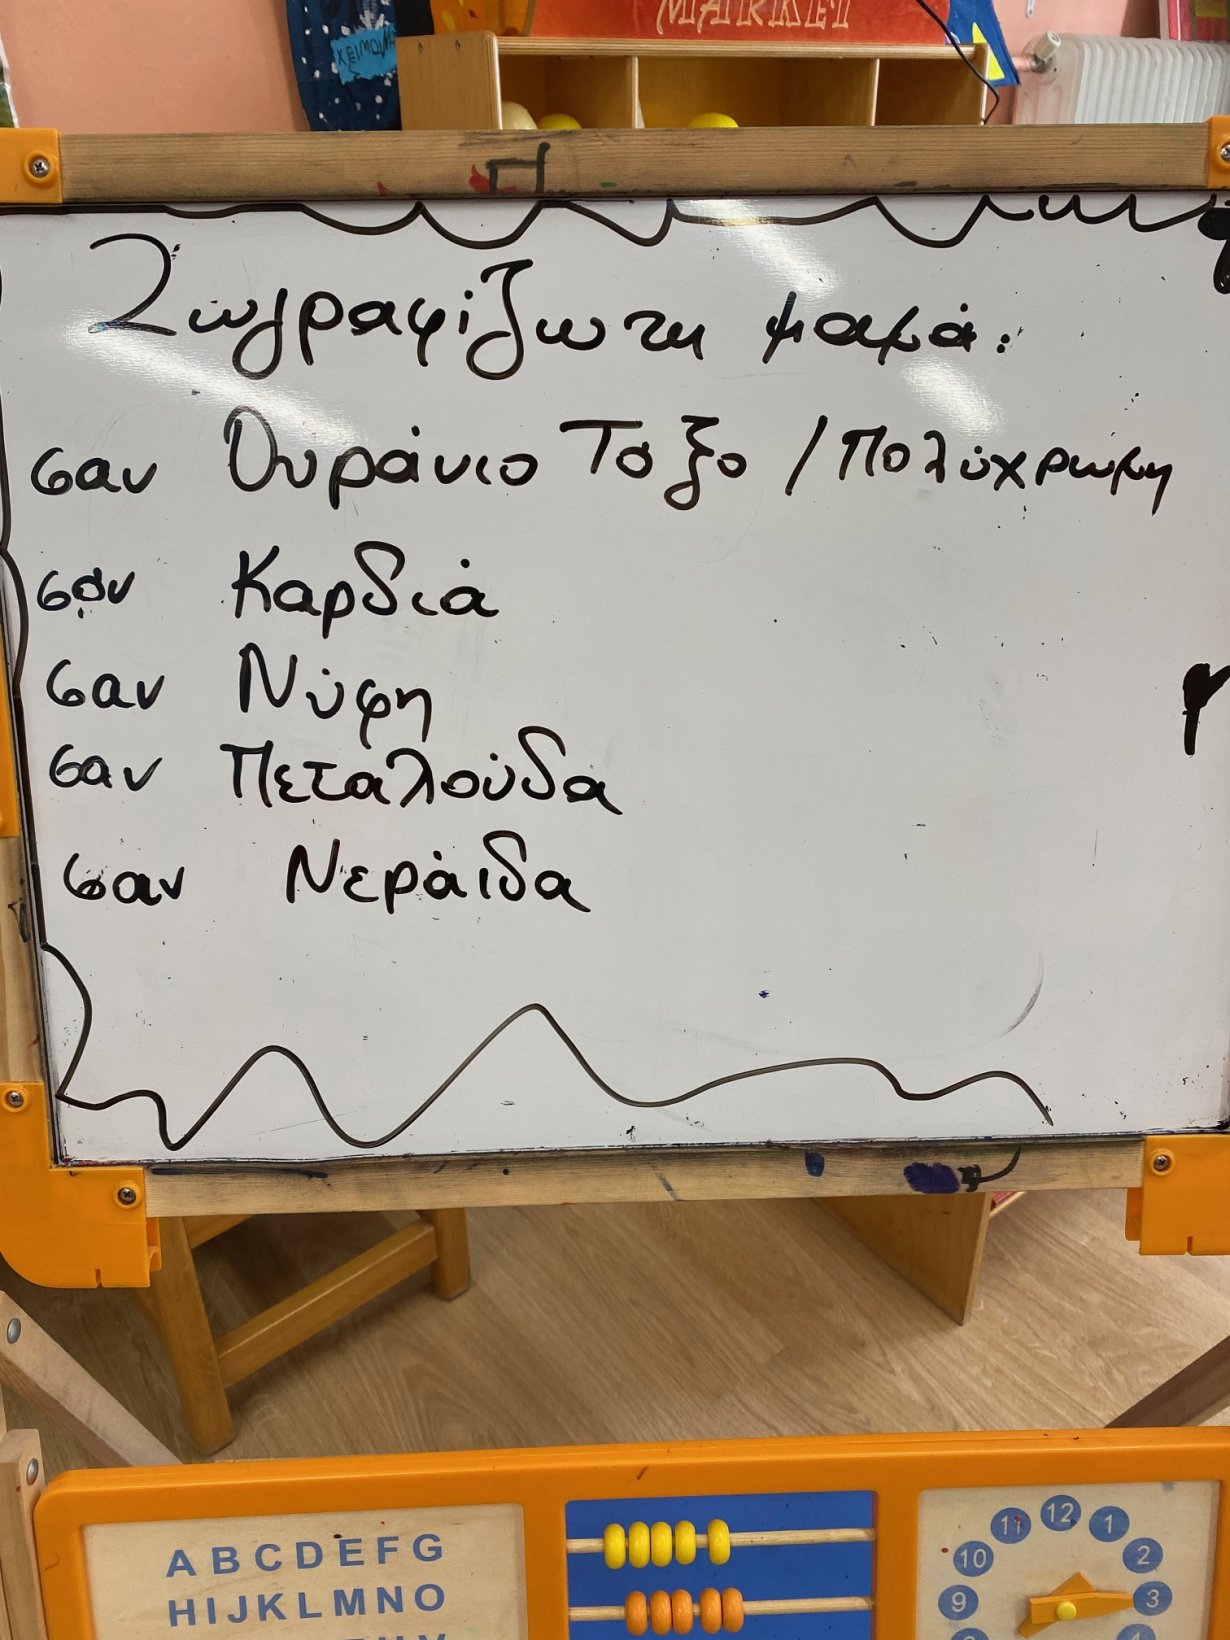 MARKET
ΧΕΙΜΩΝΑ
Ζωγραφίζω τη μαμά:
σαν Ουράνιο Τόξο / Πολύχρωμη
σαν Καρδιά
σαν Νύφη
σαν Πεταλούδα
σαν Νεράιδα
A B C D E F G
H I J K L M N O
11 12 1
10 2
9 3